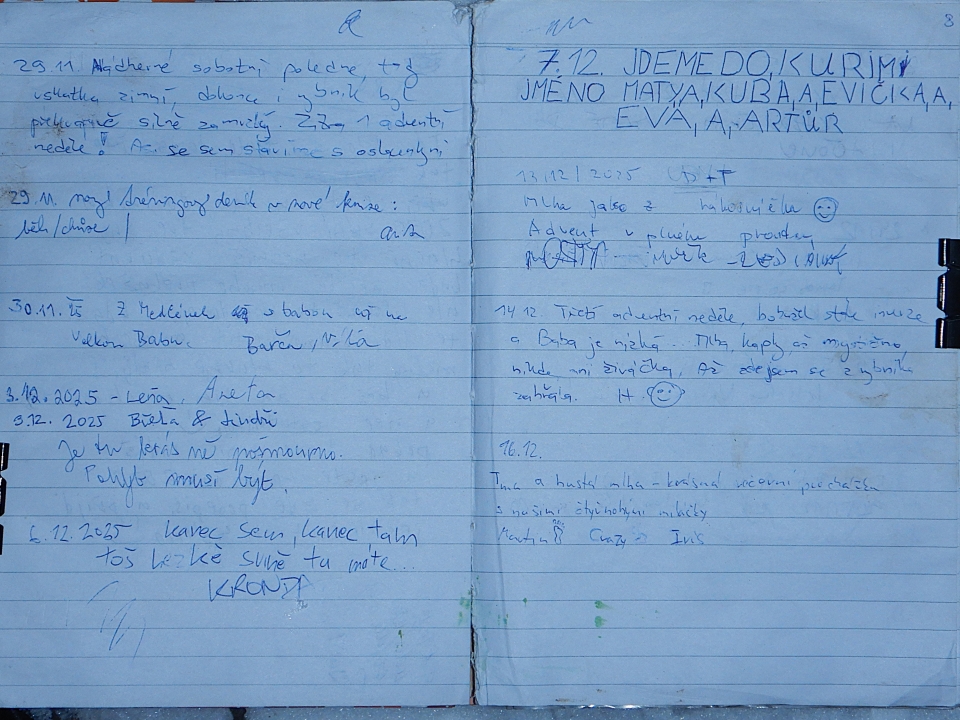 29.11. Nádherné sobotní poledne, tady
vskutku zimní, dokonce i rybník byl
překvapivě silně zamrzlý. Zítra 1 adventní
neděle! Asi se sem stavíme s
29.11. nový tréningový deník v nové knize:
běh/chůze |
30.11. 25 Z s babou až na
Velkou Babu. Barča,
3.12.2025 - Leňa, Aneta
3.12. 2025 Běta & Jindři
Je tu letos ně pošmourno.
Pohyb musí být.
6.12.2025 kanec sem, kanec tam
toš hezké svině tu máte...
KRONDA
3
7.12. JDEME DO, KUŘIMI
JMÉNO MATYA, KUBA, A, EVIČKA, A,
EVA, A, ARTŮR
13/12/2025
Mlha jako z
Advent v plném proudu
14.12 Třetí adventní neděle, bohužel stále inverze
a Baba je nízká... Mlha, kapky, až mystično,
nikde ani živáčka. Až zdejsem se z rybníka
zabřala. H.
16.12.
Tma a hustá mlha - krásná večerní procházka
s našimi čtyřnohými miláčky
Martin Crazy Iris